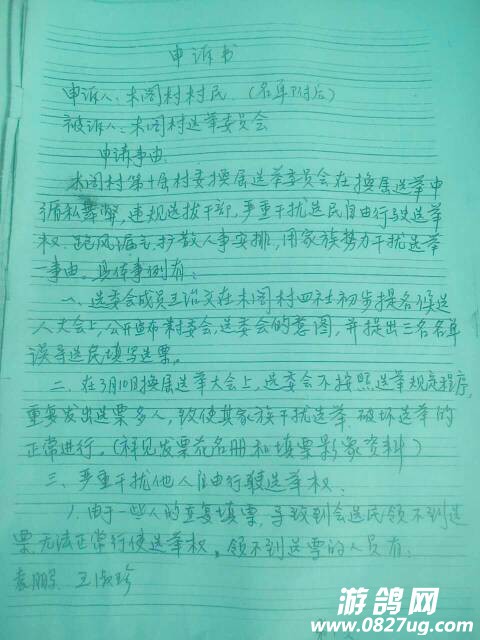 申诉书
申诉人：木阁村村民（名单附后）
被诉人：木阁村选举委员会
申请事由
木阁村第十届村委换届选举委员会在换届选举中
循私舞弊，违规选拔干部，严重干扰选民自由行驶选举
权，起风漏气，扩散人事安排，用家族势力干扰选举
一事由。具体事例有：
一、选委会成员王治文在木阁村四社初步提名候选
人大会上，公开宣布村委会、选委会的意图，并提出三名名单
误导选民填写选票。
二、在3月10日换届选举大会上，选委会不按照选举规定程序，
重复发出选票多人，致使其家族干扰选举，破坏选举的
正常进行。（祥见发票花名册和填票影象资料）
三、严重干扰他人自由行驶选举权。
1、由于一些人的重复填票，导致到会选民领不到选
票无法正常行使选举权，领不到选票的人员有：
袁鹏 王淑珍
游鸽网
www.0827ug.com